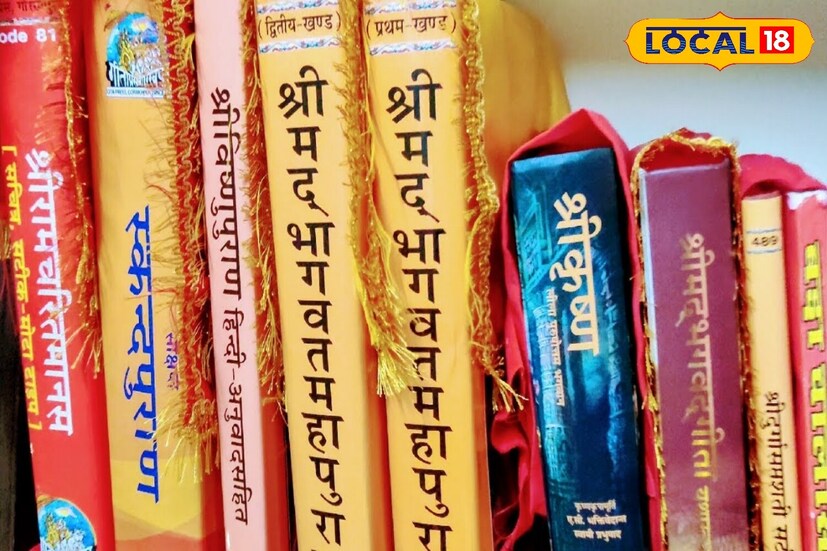 ode 81
श्रीरामचरितमानस
[ सचित्र, सटीक-मोटा टाइप ]
स्कन्दपुराण
श्रीविष्णुपुराण हिन्दी-अनुवादसहित
(द्वितीय-खण्ड)
श्रीमद्भागवतमहापुरा
(प्रथम-खण्ड)
श्रीमद्भागवतमहापुरा
श्रीकृष्ण
कृष्णकृपामूर्ति
ए.सी. भक्तिवेदान्त
स्वामी प्रभुपाद
श्रीमद्भगवद्गीता
489
श्रीदुर्गासप्तशती
LOCAL 18